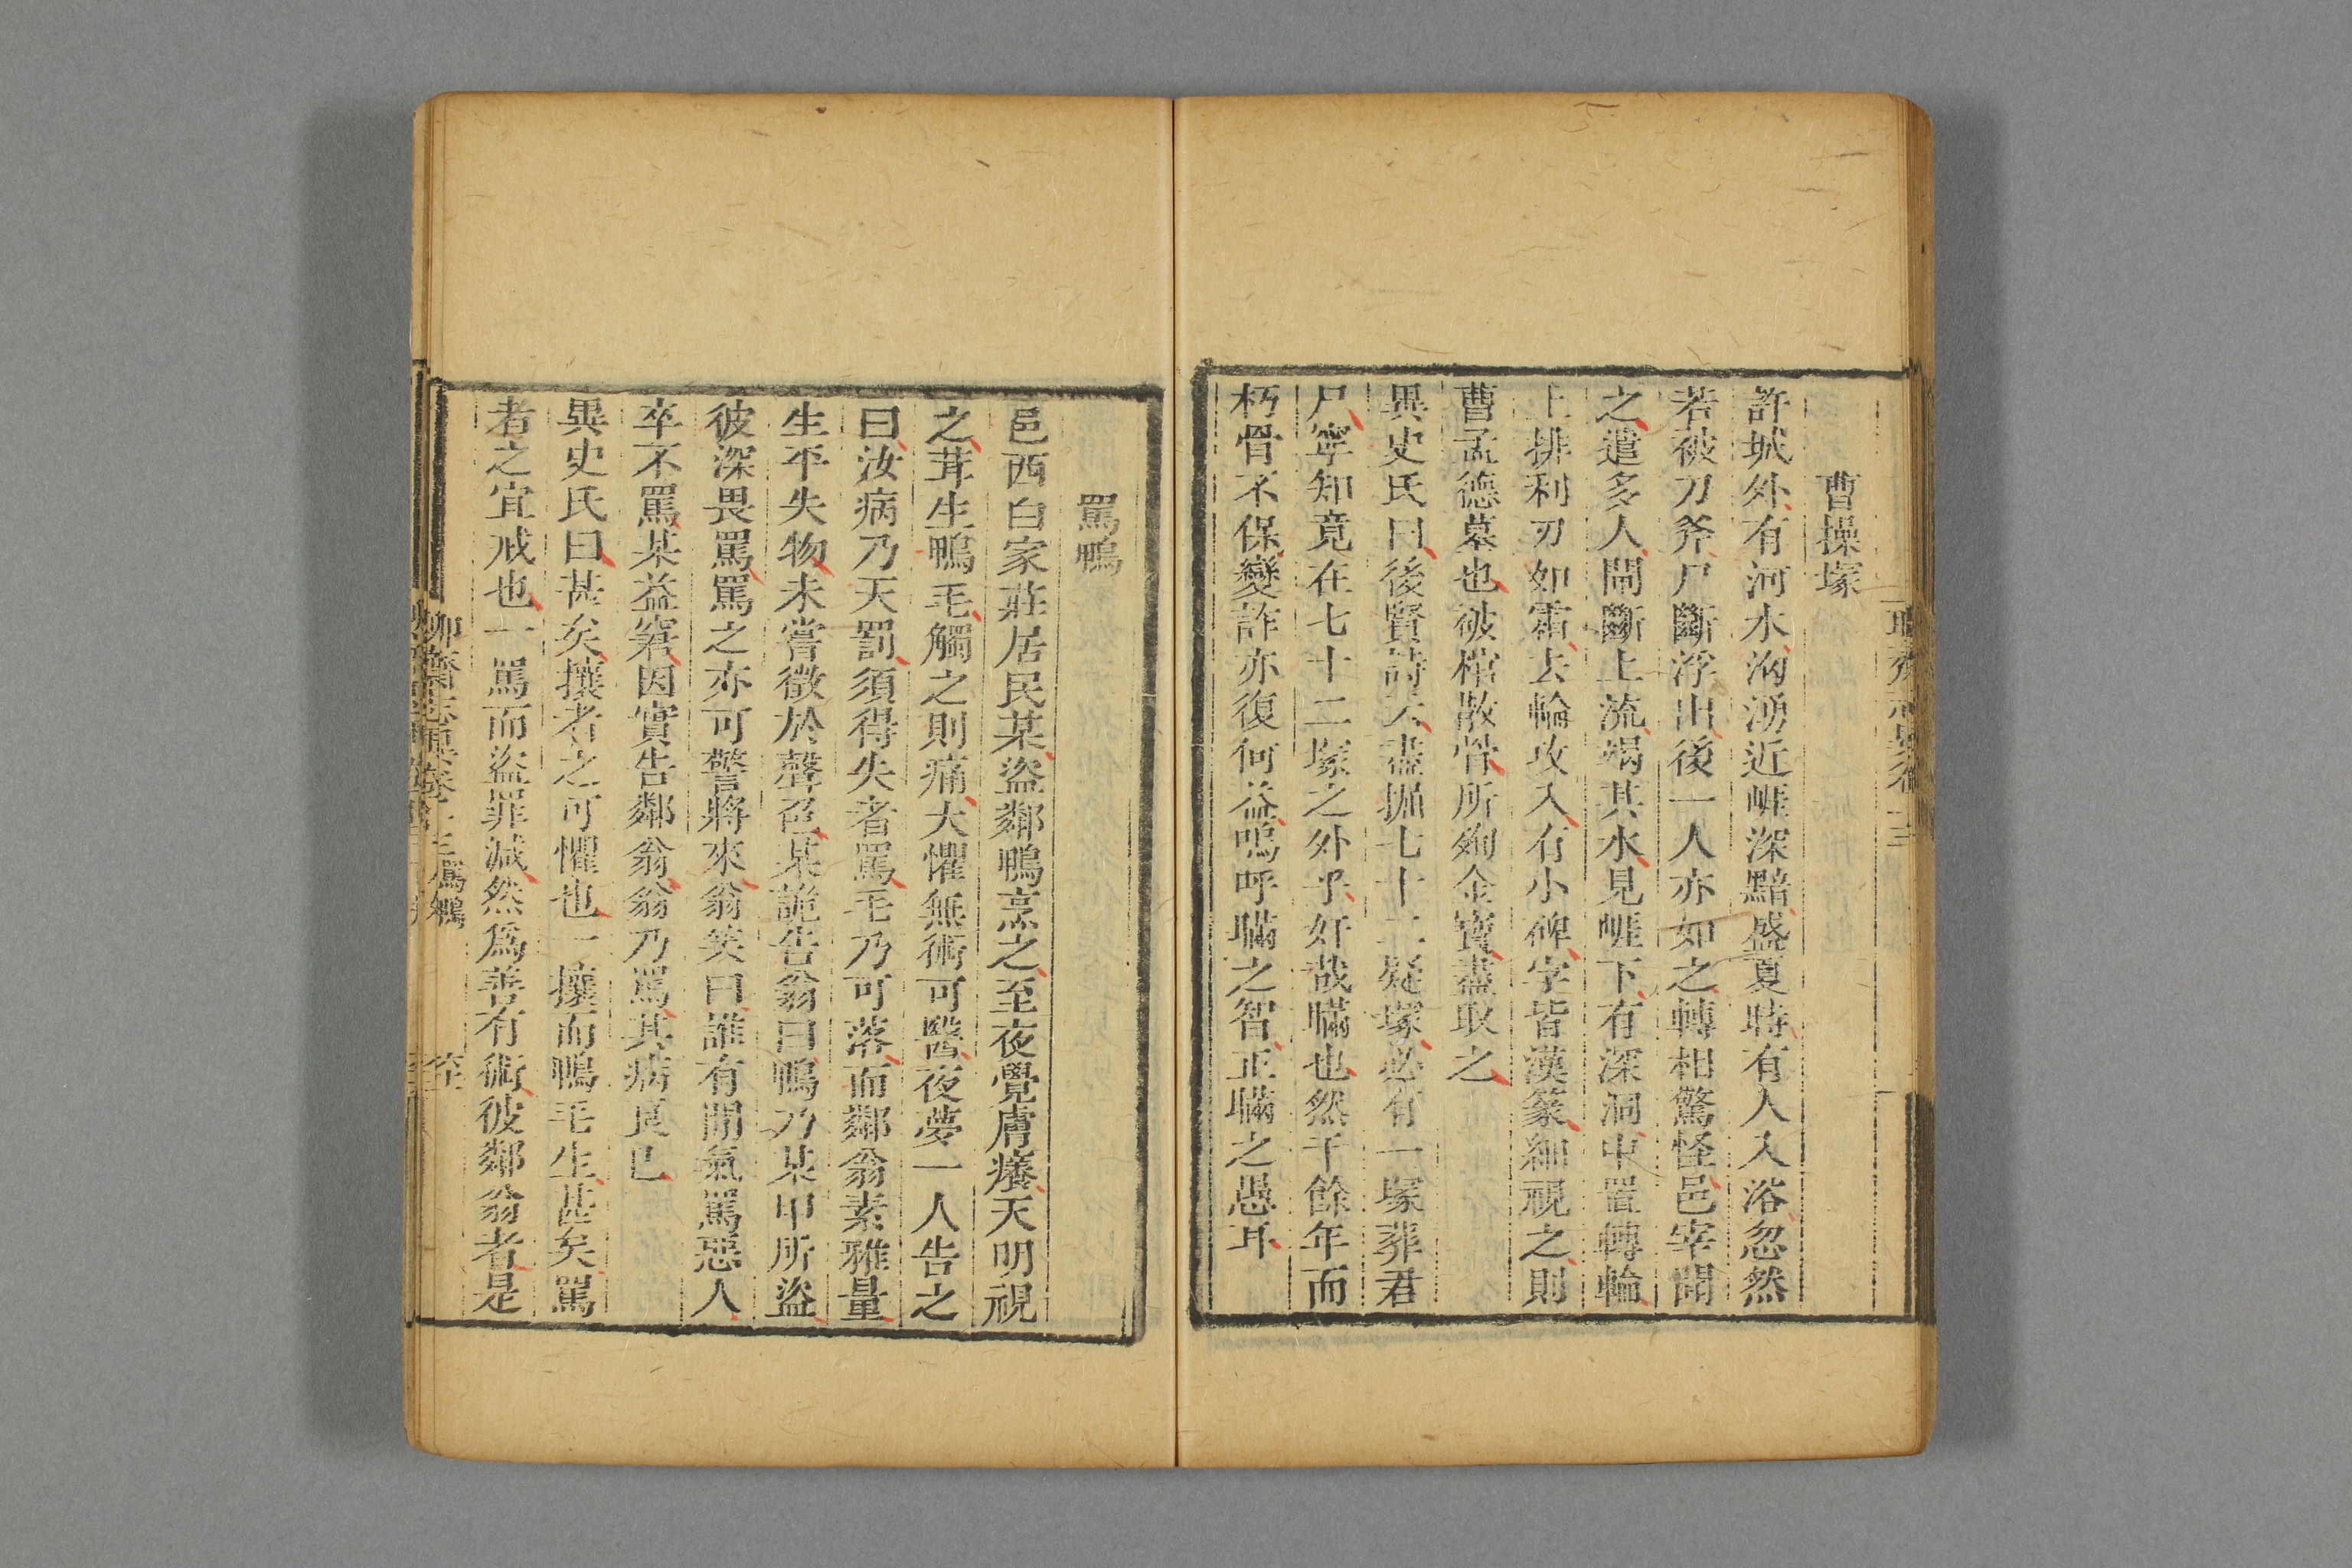 曹操塚
許城外有河水洶湧近崕深黯盛夏時有人入浴忽然
若被刀斧尸斷浮出後一人亦如之轉相驚怪邑宰聞
之遣多人閘斷上流竭其水見崕下有深洞中置轉輪
上排利刃如霜去輪攻入有小碑字皆漢篆細視之則
曹孟德墓也破棺散骨所殉金寶盡取之
異史氏曰後賢詩云盡掘七十二疑塚必有一塚葬君
尸寧知竟在七十二塚之外乎奸哉瞞也然千餘年而
朽骨不保變詐亦復何益嗚呼瞞之智正瞞之愚耳
罵鴨
邑西白家莊居民某盜鄰鴨烹之至夜覺膚癢天明視
之茸生鴨毛觸之則痛大懼無術可醫夜夢一人告之
曰汝病乃天罰須得失者罵毛乃可落而鄰翁素雅量
生平失物未嘗徵於聲色某詭告翁曰鴨乃某甲所盜
彼深畏罵罵之亦可警將來翁笑曰誰有閒氣罵惡人
卒不罵某益窘因實告鄰翁翁乃罵其病良已
異史氏曰甚矣攘者之可懼也一攘而鴨毛生甚矣罵
者之宜戒也一罵而盜罪減然爲善有術彼鄰翁者是